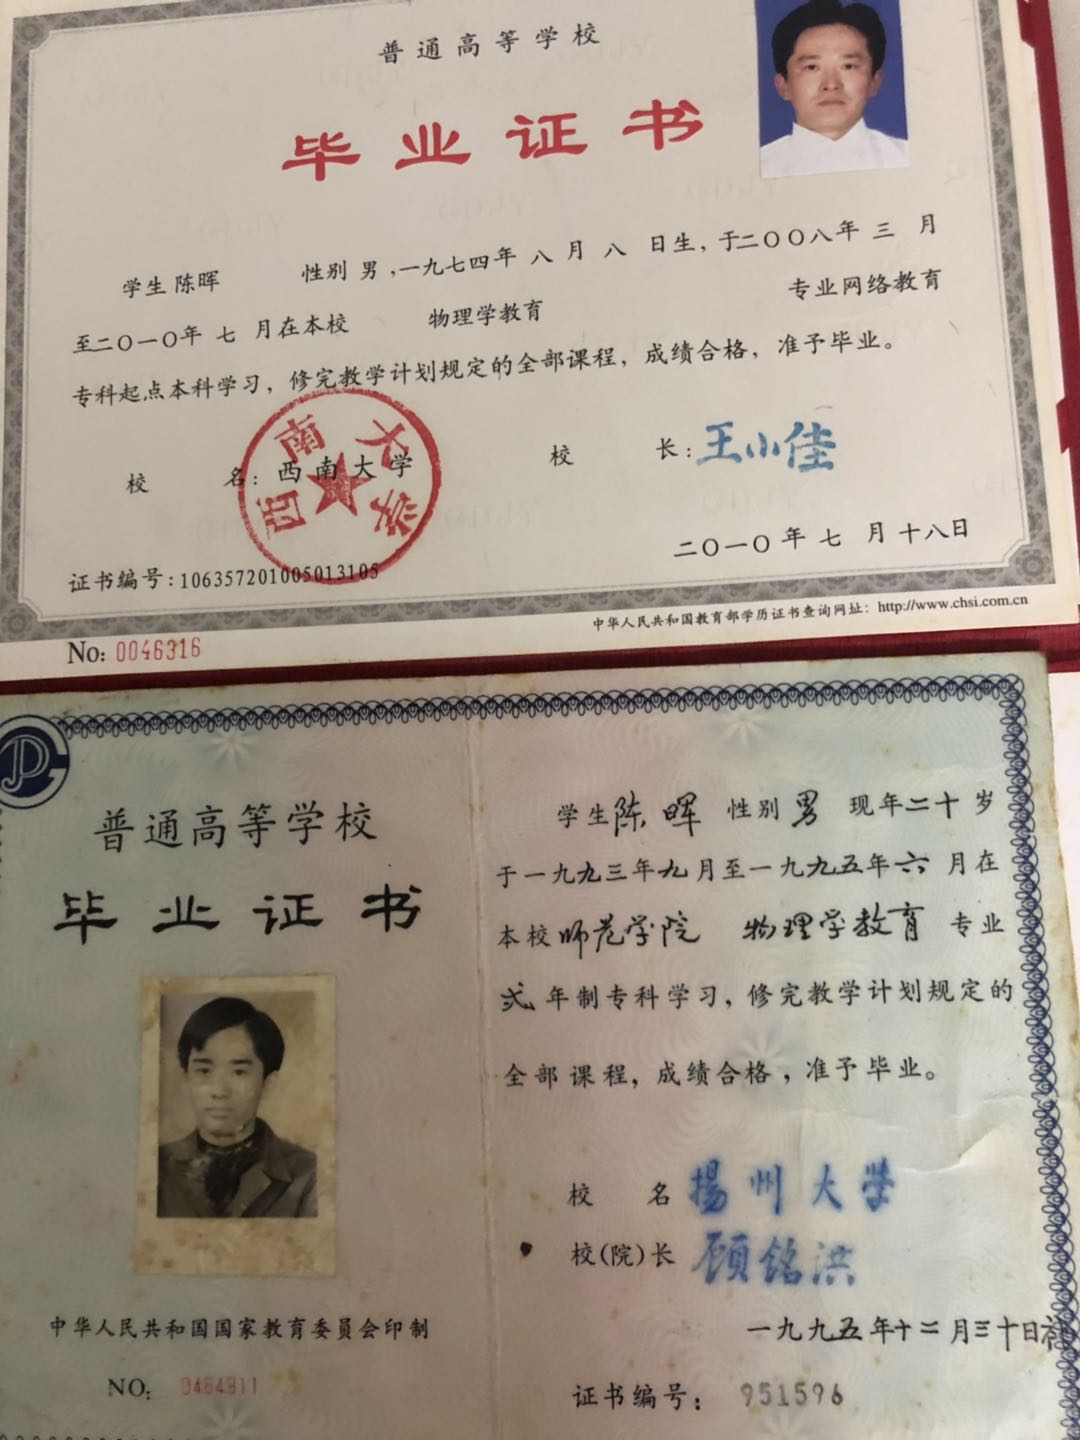 普通高等学校
毕业证书
学生 陈晖 性别 男 ,一九七四年 八 月 八 日生，于二〇〇八年 三 月
至二〇一〇年 七 月在本校 物理学教育 专业网络教育
专科起点本科学习，修完教学计划规定的全部课程，成绩合格，准予毕业。
校 名：西南大学 校 长：王小佳
西南大学
二〇一〇年 七 月十八日
证书编号：106357201005013105
中华人民共和国教育部学历证书查询网址：http://www.chsi.com.cn
No: 0046316
普通高等学校
毕业证书
中华人民共和国国家教育委员会印制
NO: 0484911
学生陈晖 性别 男 现年二十岁
于一九九三年九月至一九九五年六月在
本校师范学院 物理学教育 专业
弍年制专科学习，修完教学计划规定的
全部课程，成绩合格，准予毕业。
校 名 揚州大學
校(院)长 顾铭洪
一九九五年十二月三十日
证书编号： 951596